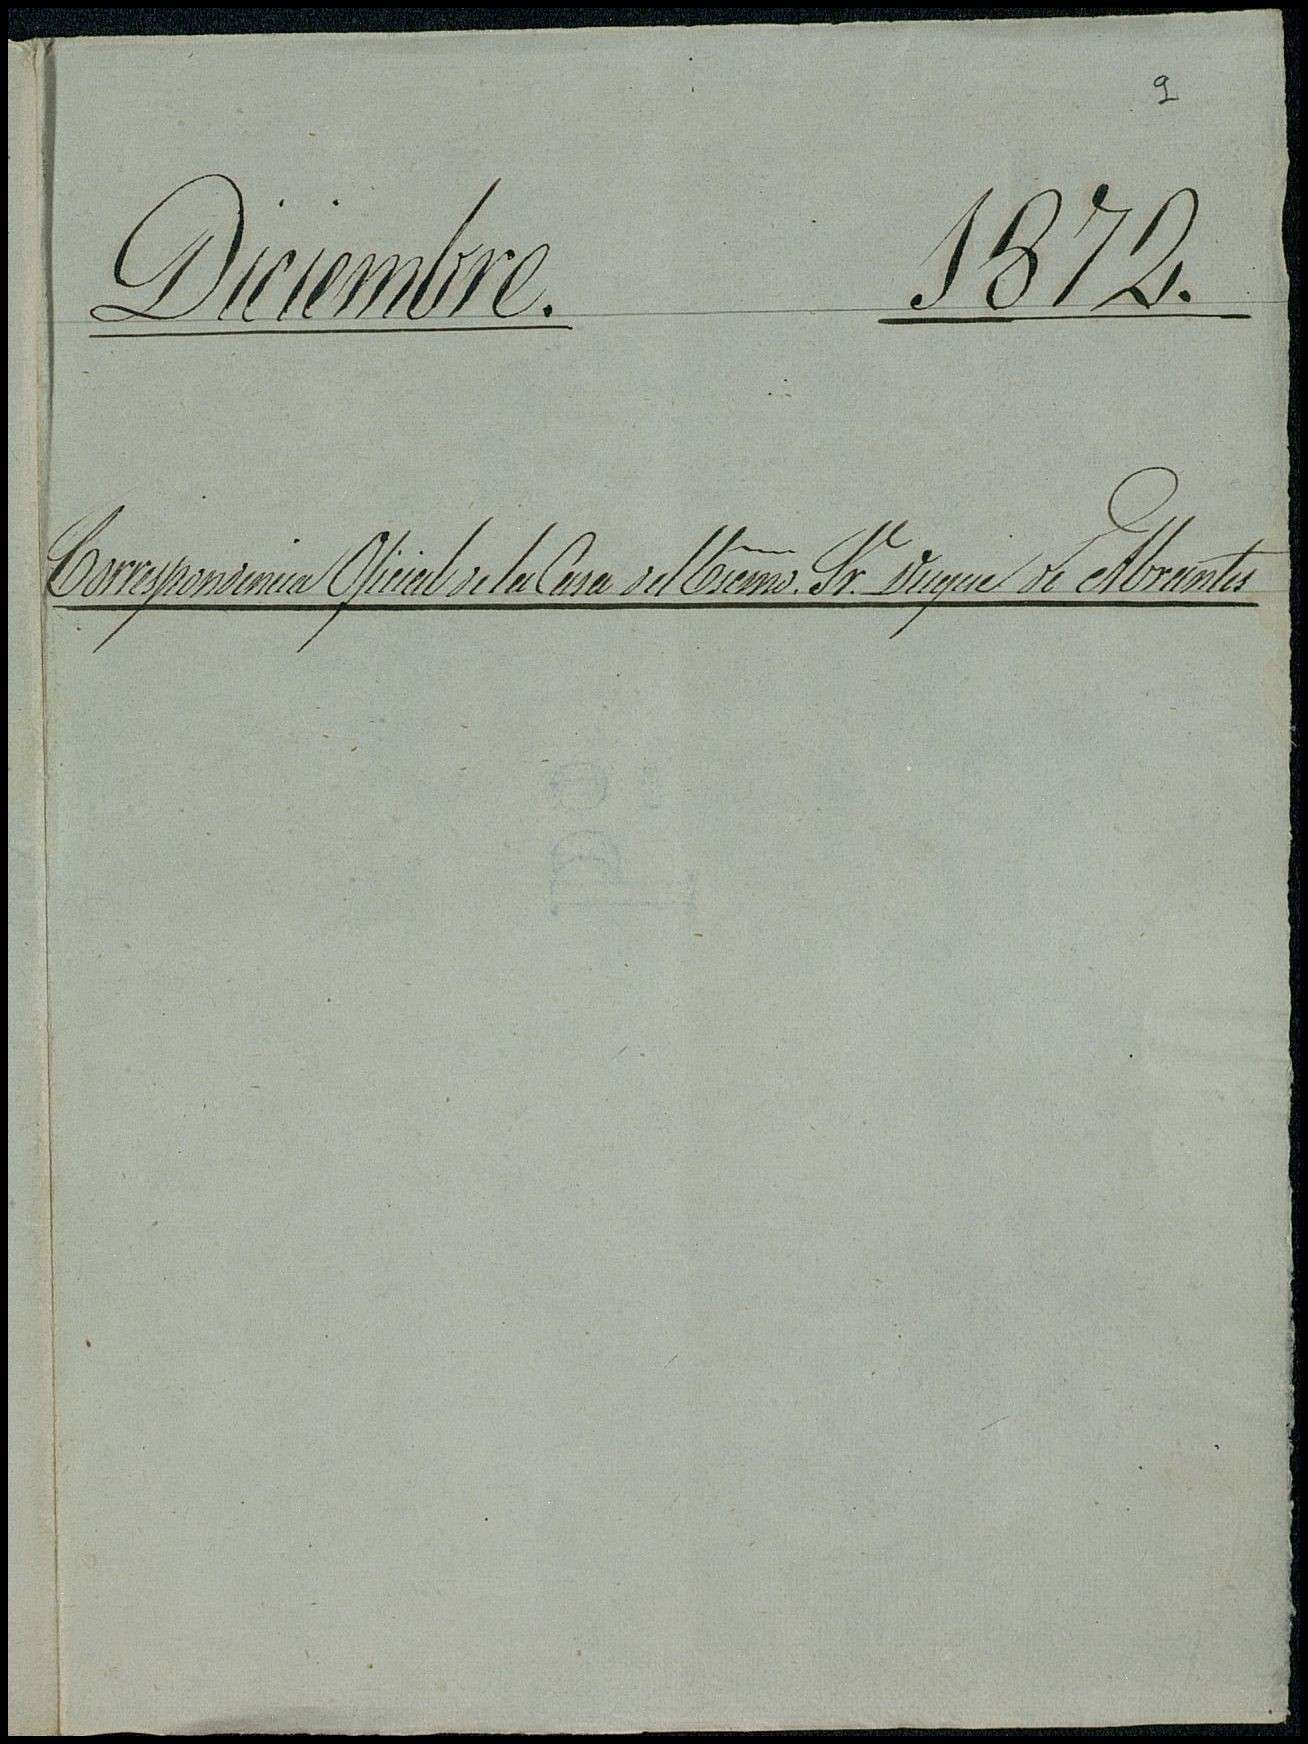 2
Diciembre. 1872.
Correspondencia Oficial de la Casa del Excmo. Sr. Duque de Abrantes